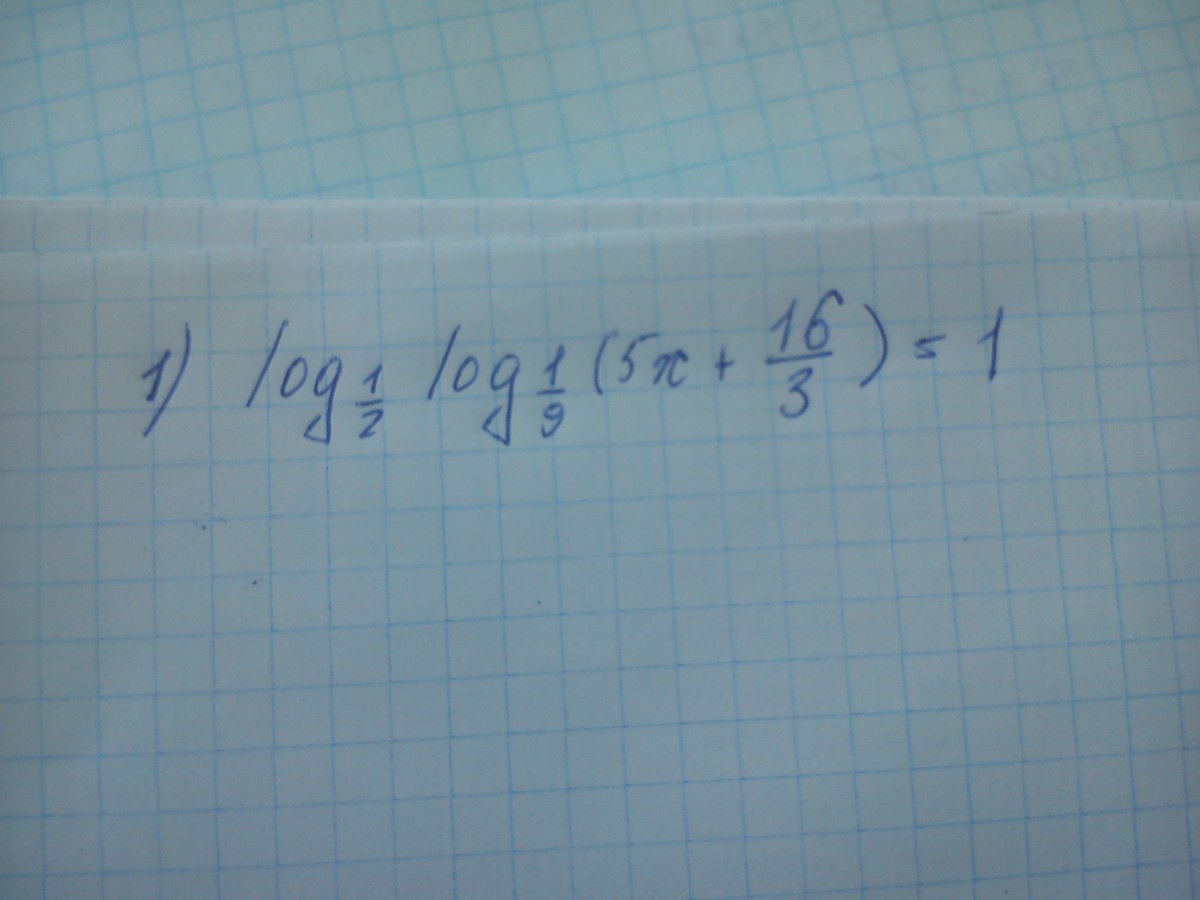 1) log_{1/2} log_{1/9} (5x + 16/3) = 1